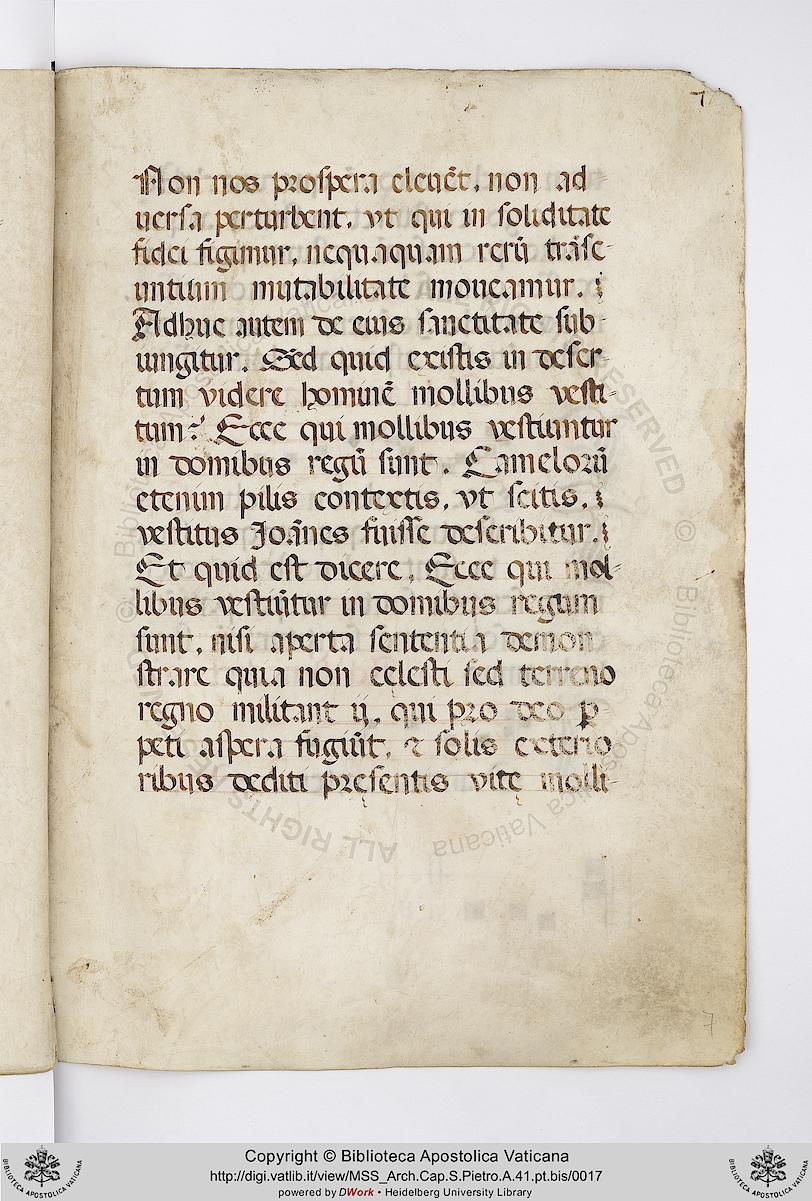 7
Non nos prospera eleuẽt, non ad-
uersa perturbent, vt qui in soliditate
fidei figimur, nequaquam rerũ trãse-
untium mutabilitate moueamur.
Adhuc autem de eius sanctitate sub-
iungitur. Sed quid existis in deser-
tum videre hominẽ mollibus vesti-
tum? Ecce qui mollibus vestiuntur
in domibus regũ sunt. Camelorũ
etenim pilis contextis, vt scitis,
vestitus Joãnes fuisse describitur.
Et quid est dicere, Ecce qui mol-
libus vestiũtur in domibus regum
sunt, nisi aperta sententia demon
strare quia non celesti sed terreno
regno militant ij, qui pro deo ꝑ-
peti aspera fugiũt, ⁊ solis exterio
ribus dediti pręsentis vitę molli-
7
ALL RIGHTS RESERVED © Biblioteca Apostolica Vaticana
Copyright © Biblioteca Apostolica Vaticana
http://digi.vatlib.it/view/MSS_Arch.Cap.S.Pietro.A.41.pt.bis/0017
powered by DWork • Heidelberg University Library
BIBLIOTECA APOSTOLICA VATICANA
BIBLIOTECA APOSTOLICA VATICANA